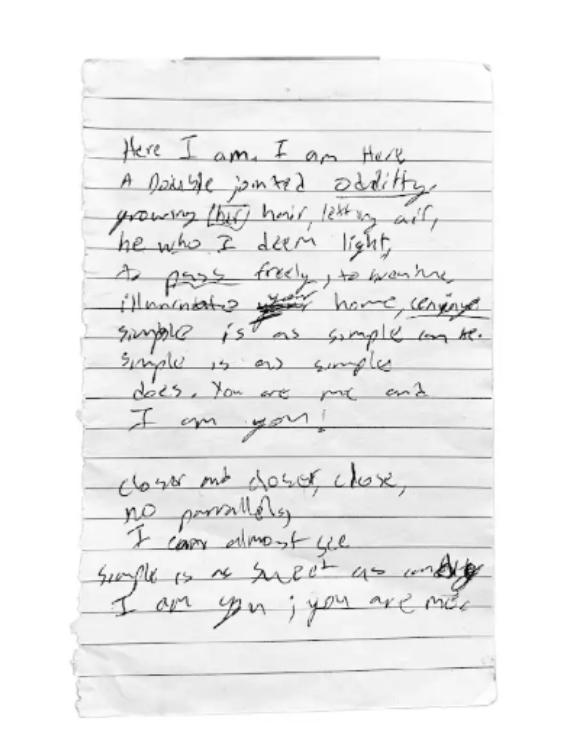 Here I am. I am Here
A Double jointed oddditty,
growing (her) hair, letting air,
he who I deem light,
to pass freely, to examine,
illuminate your home,
simple is as simple can be.
simple is as simple
does. You are me and
I am you!
closer and closer, close,
no parrallels,
I can almost see
simple is as sweet as candy
I am you; you are me.